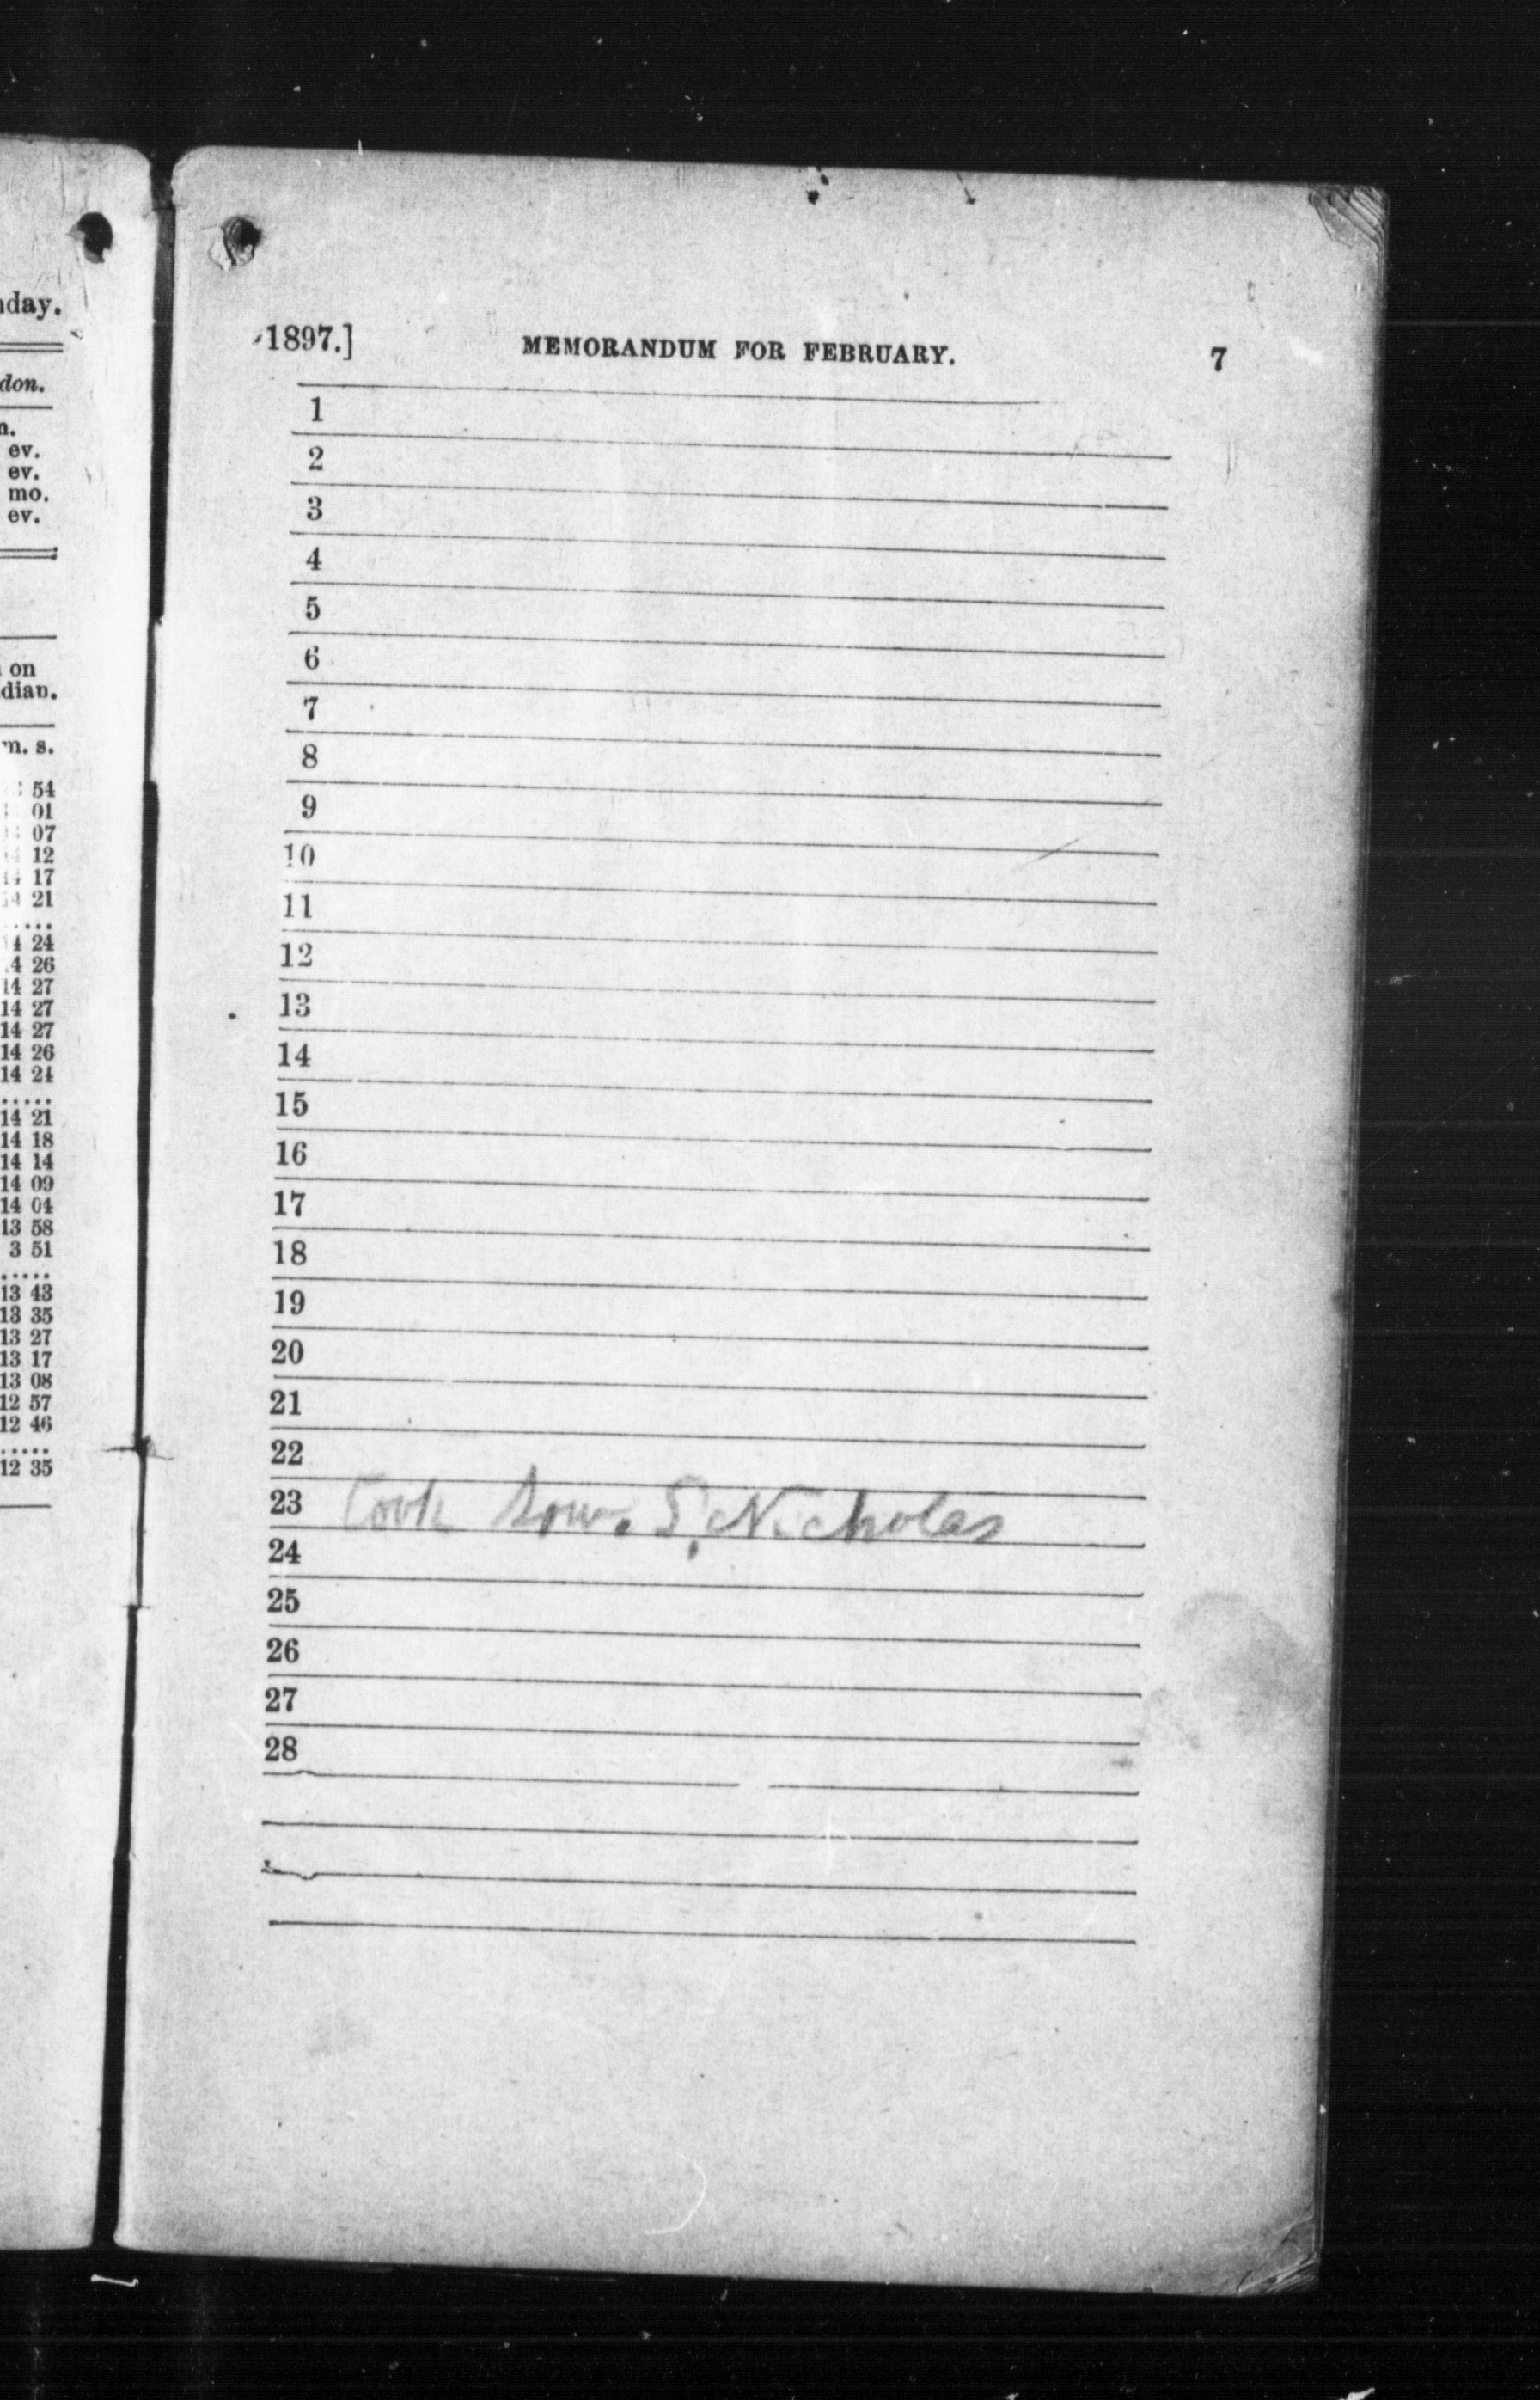 day.
don.
ev.
ev.
mo.
ev.
on
dian.
m. s.
54
01
07
12
14 17
14 21
.....
14 24
14 26
14 27
14 27
14 27
14 26
14 24
.....
14 21
14 18
14 14
14 09
14 04
13 58
3 51
.....
13 43
13 35
13 27
13 17
13 08
12 57
12 46
.....
12 35
1897.] MEMORANDUM FOR FEBRUARY. 7
1
2
3
4
5
6
7
8
9
10
11
12
13
14
15
16
17
18
19
20
21
22
23 Nicholas
24
25
26
27
28